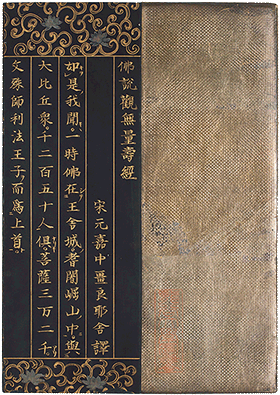 佛說觀無量壽經
宋元嘉中畺良耶舍譯
如是我聞。一時佛在王舍城。耆闍崛山中。與
大比丘衆。千二百五十人俱。菩薩三万二千。
文殊師利法王子。而爲上首。